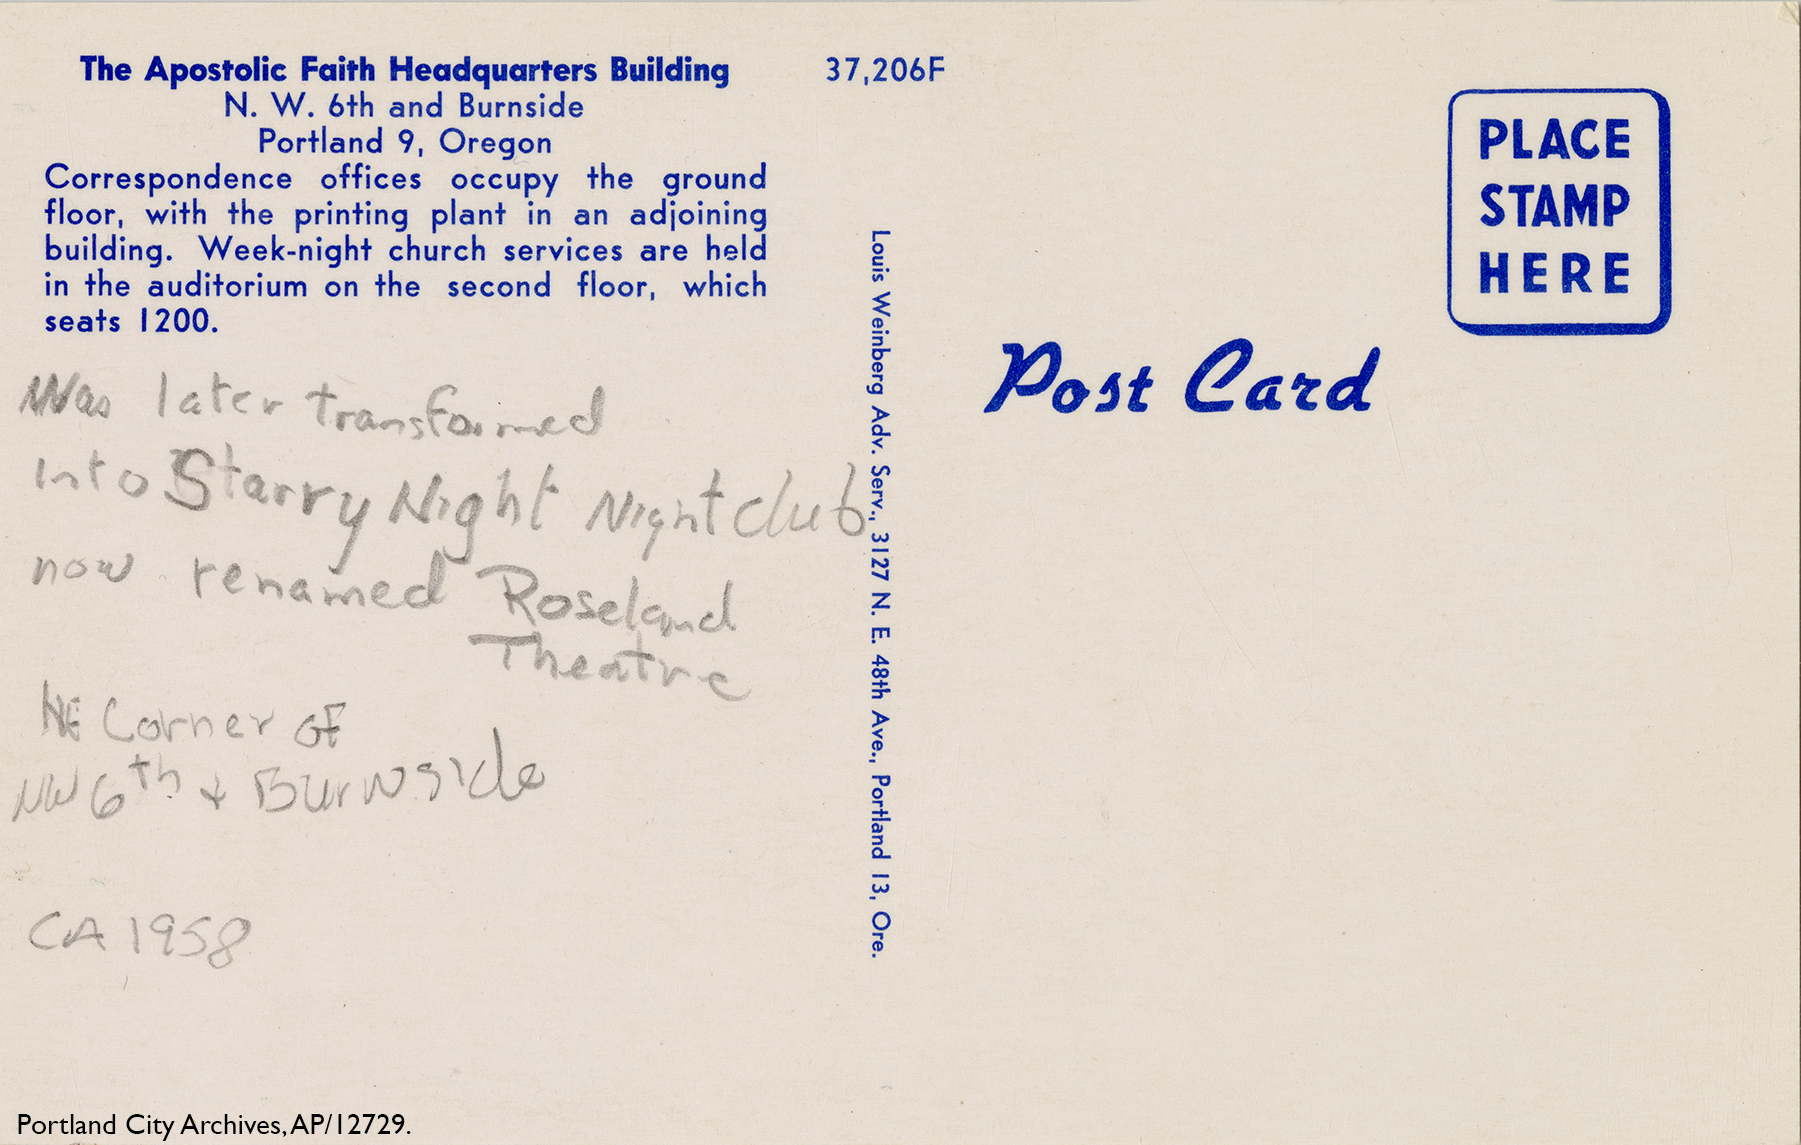 The Apostolic Faith Headquarters Building
N. W. 6th and Burnside
Portland 9, Oregon
Correspondence offices occupy the ground
floor, with the printing plant in an adjoining
building. Week-night church services are held
in the auditorium on the second floor, which
seats 1200.
Was later transformed
into Starry Night Nightclub
now renamed Roseland
Theatre
NE Corner OF
NW 6th + Burnside
CA 1958
37,206F
Louis Weinberg Adv. Serv., 3127 N. E. 48th Ave., Portland 13, Ore.
PLACE
STAMP
HERE
Post Card
Portland City Archives, AP/12729.